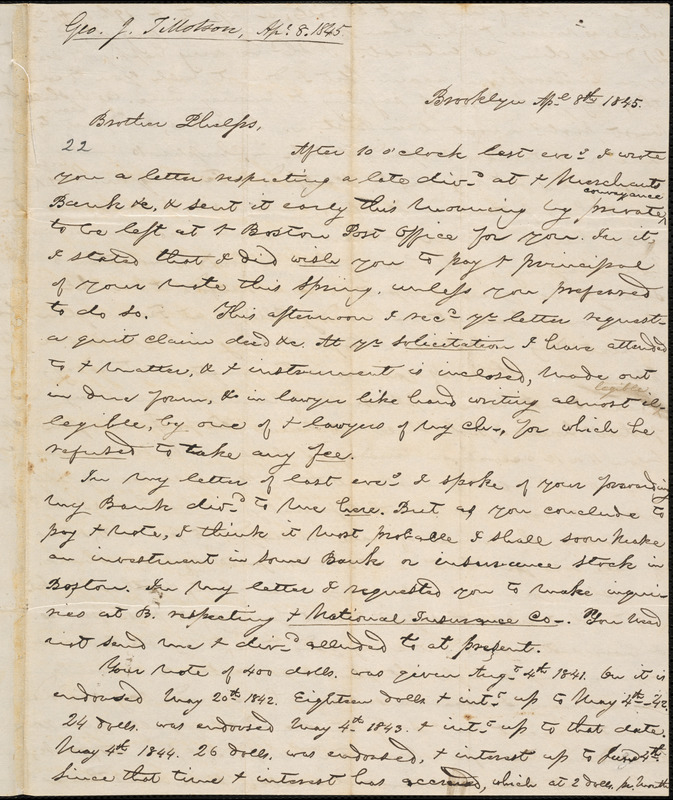 Geo. J. Tillotson, Apl. 8. 1845.
Brooklyn Apl 8th 1845.
Brother Phelps,
22 After 10 o'clock last eve.g I wrote
you a letter respecting a late div.d at + Merchants
conveyance
Bank &c, & sent it early this morning by private ^
to be left at + Boston Post Office for you. In it,
I stated that I did wish you to pay + principal
of your note this Spring, unless you preferred
to do so. This afternoon I rec.d yr letter request-
a quit claim deed &c. At yr solicitation I have attended
to + matter, & + instrument is inclosed, made out
legible
in due form, & in lawyer like hand writing almost il-
legible, by one of + lawyers of my chh., for which he
refused to take any fee.
In my letter of last eve.g I spoke of your forwarding
my Bank div.d to me here. But as you conclude to
pay + note, I think it most probable I shall soon make
an investment in some Bank or insurance stock in
Boston. In my letter I requested you to make inqui-
ries at B. respecting + National Insurance Co-. You need
not send me + div.d alluded to at present.
Your note of 400 dolls. was given Aug.t 4th 1841. On it is
endorsed May 20th 1842. Eighteen dolls + int.t up to May 4th -42.
24 dolls. was endorsed May 4th 1843. + int.t up to that date.
May 4th 1844. 26 dolls. was endorsed, + interest up to June 4th
Since that time + interest has accrued, which at 2 dolls. pr. month